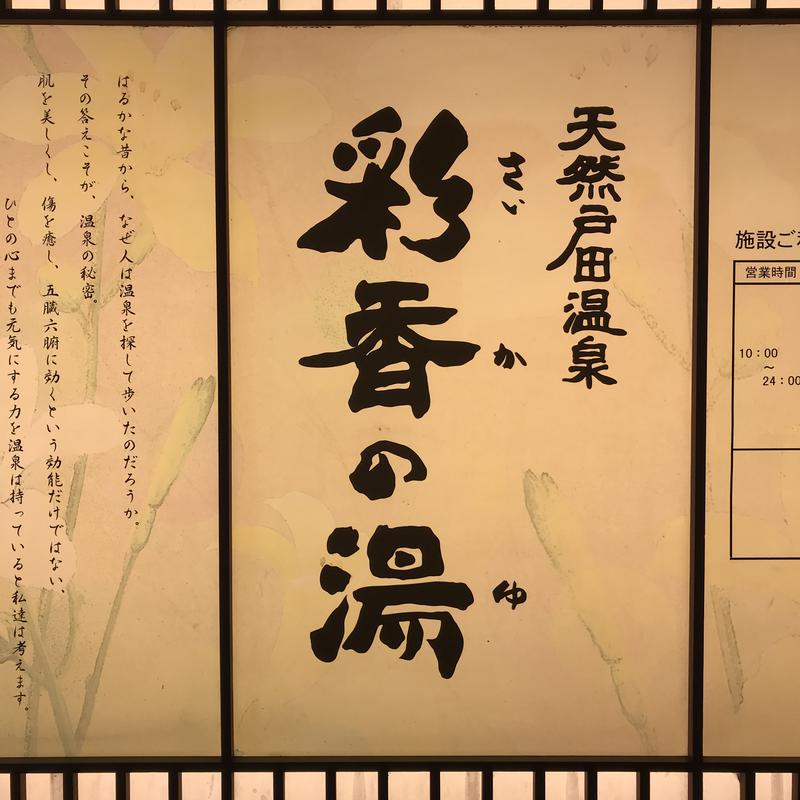 天然戸田温泉
彩香の湯
さい
か
ゆ
はるかな昔から、なぜ人は温泉を探して歩いたのだろうか。
その答えこそが、温泉の秘密。
肌を美しくし、傷を癒し、五臓六腑に効くという効能だけではない、
ひとの心までも元気にする力を温泉は持っていると私達は考えます。
施設ご利
営業時間
10：00
～
24：00